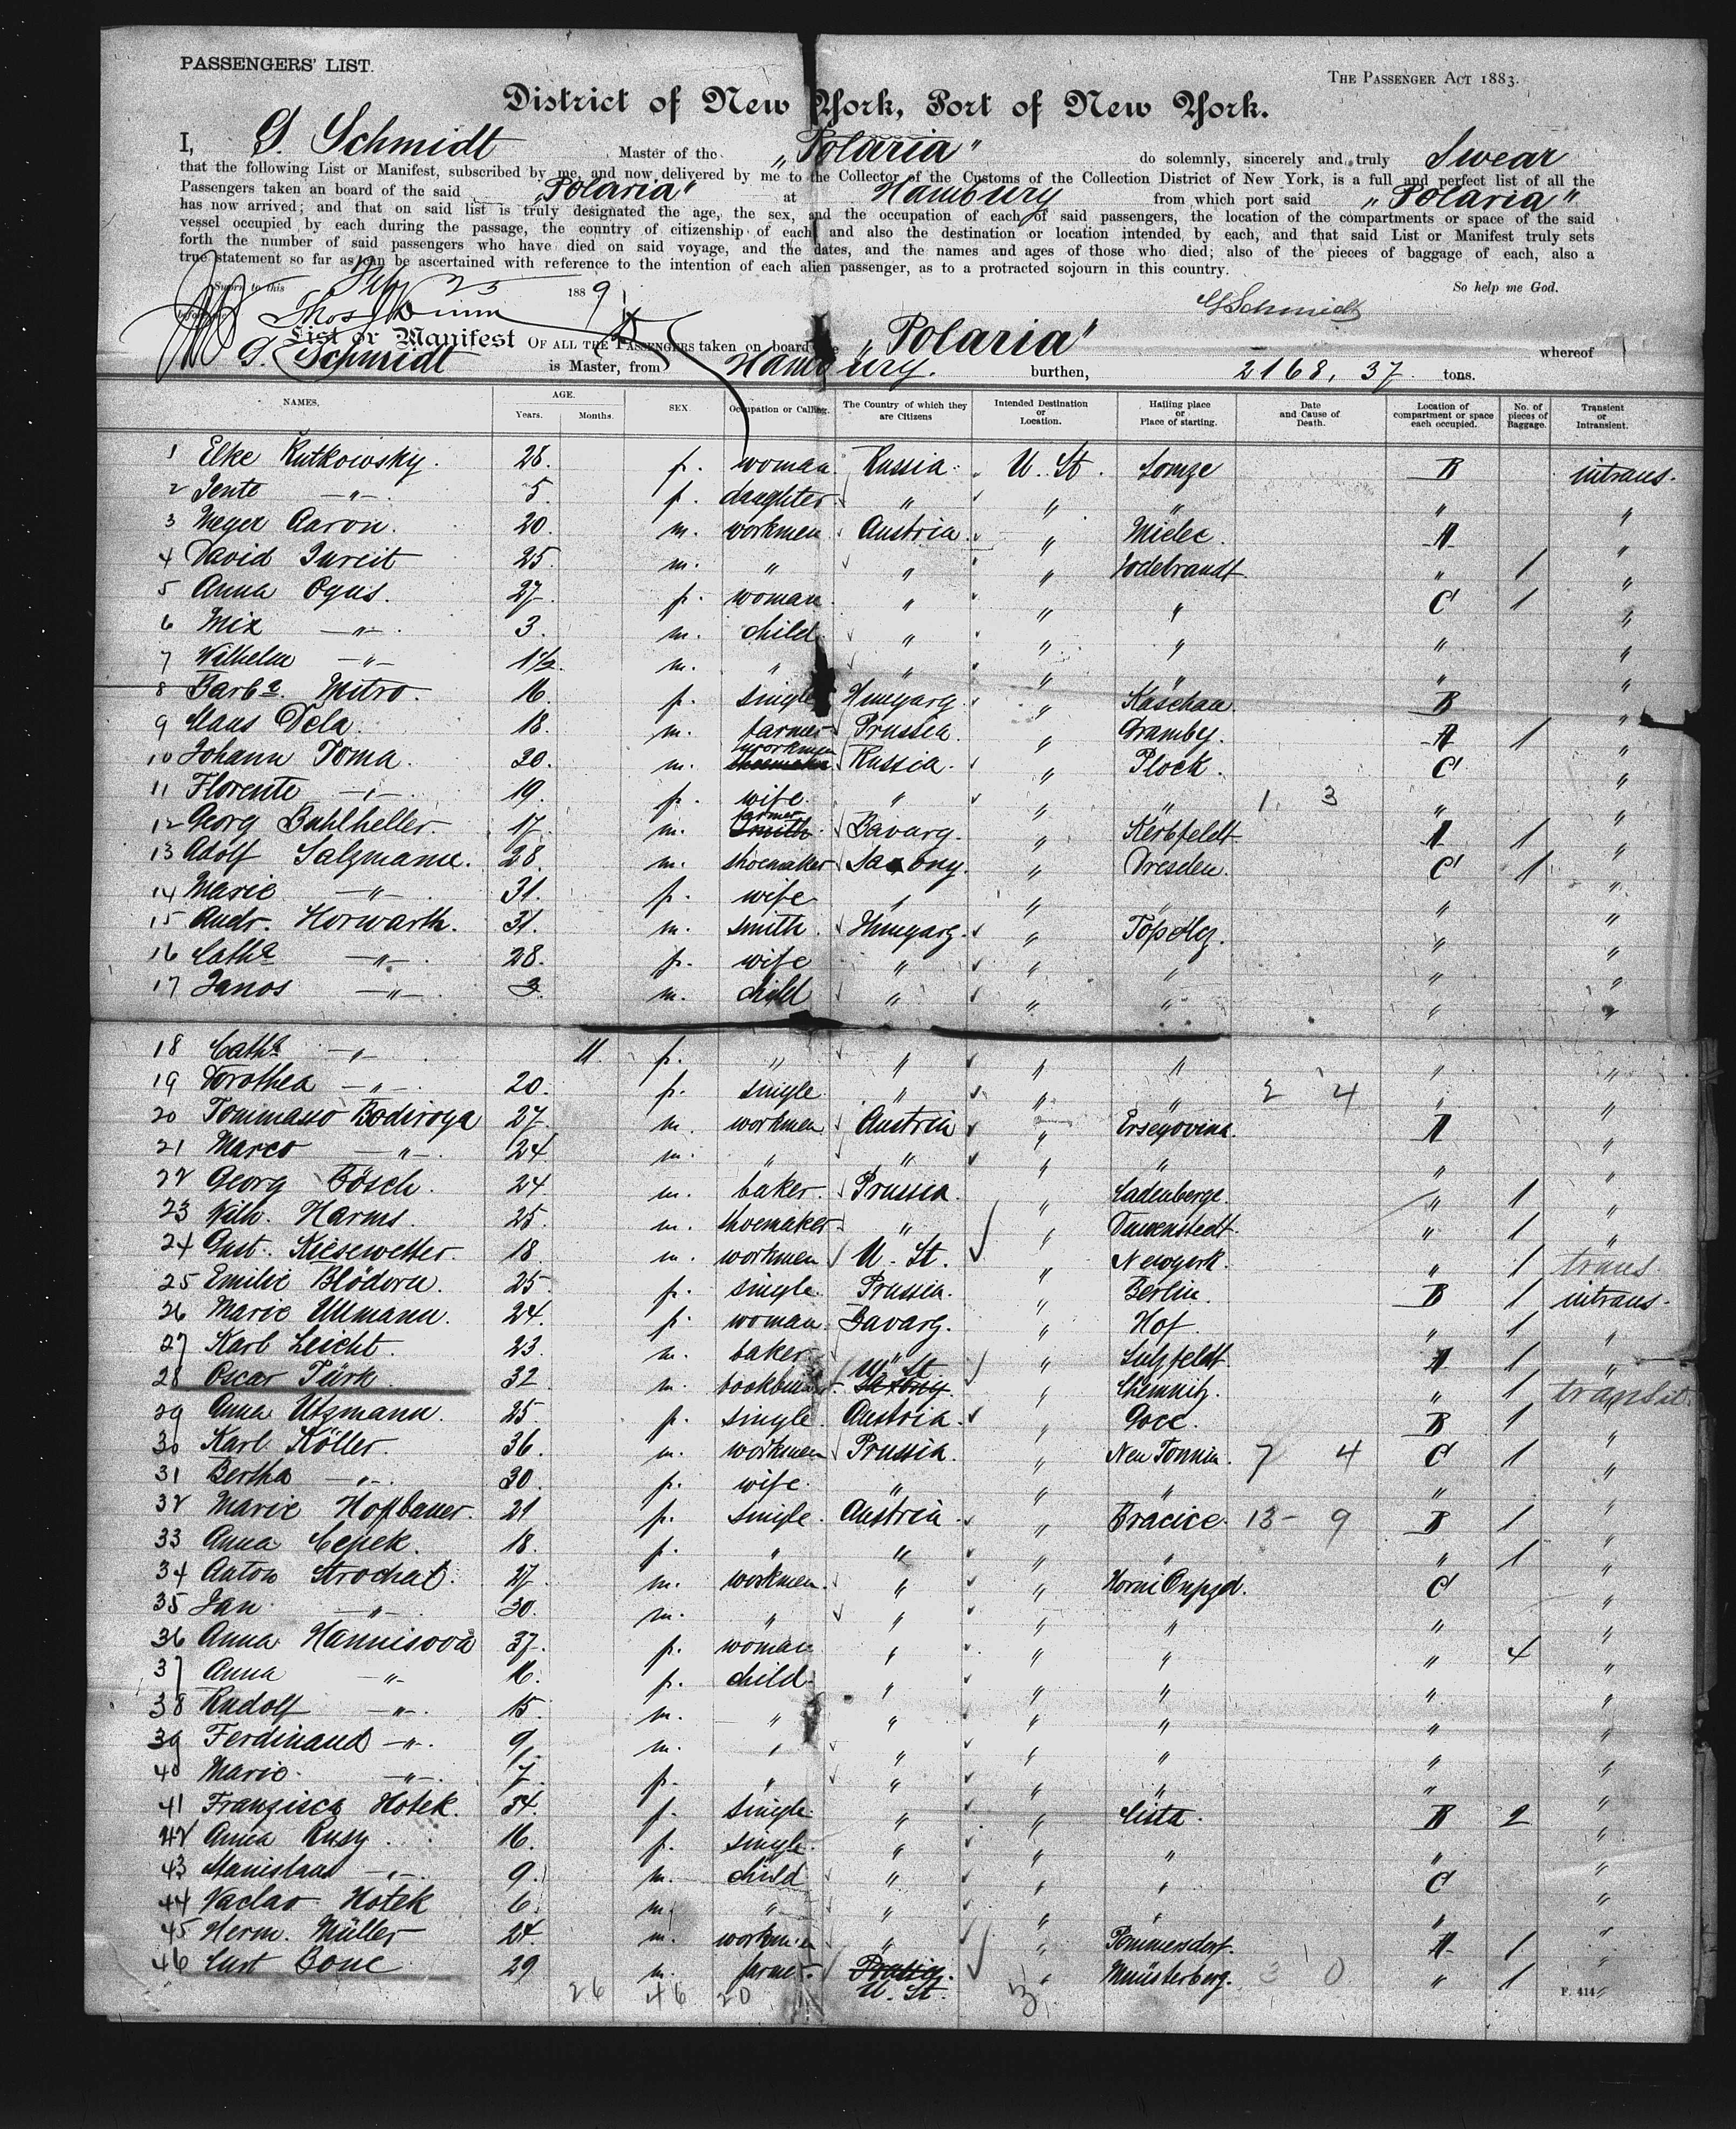 PASSENGERS' LIST.
THE PASSENGER ACT 1883.
District of New York, Port of New York.
I, G. Schmidt Master of the „Polaria" do solemnly, sincerely and truly Swear
that the following List or Manifest, subscribed by me, and now delivered by me to the Collector of the Customs of the Collection District of New York, is a full and perfect list of all the
Passengers taken an board of the said „Polaria" at Hamburg from which port said „Polaria"
has now arrived; and that on said list is truly designated the age, the sex, and the occupation of each of said passengers, the location of the compartments or space of the said
vessel occupied by each during the passage, the country of citizenship of each and also the destination or location intended by each, and that said List or Manifest truly sets
forth the number of said passengers who have died on said voyage, and the dates, and the names and ages of those who died; also of the pieces of baggage of each, also a
true statement so far as can be ascertained with reference to the intention of each alien passenger, as to a protracted sojourn in this country.
Sworn to this Feb 25 1889 So help me God.
Thos Dunn G Schmidt
List or Manifest OF ALL THE PASSENGERS taken on board the „Polaria" whereof
G. Schmidt is Master, from Hamburg. burthen, 2168, 37 tons.
NAMES. AGE. Years. Months. SEX. Occupation or Calling. The Country of which they are Citizens Intended Destination or Location. Hailing place or Place of starting. Date and Cause of Death. Location of compartment or space each occupied. No. of pieces of Baggage. Transient or Intransient.
1 Elke Rutkowsky. 28. f. woman Russia. U. St. Lomze B intrans.
2 Jente -„- 5. f. daughter „ „ „ „ „
3 Meyer Aaron. 20. m. workmen Austria „ Mielec. A „
4 David Jureit 25. m. „ „ „ Jodebrandt „ 1 „
5 Anna Ogus. 27. f. woman. „ „ „ C 1 „
6 Mix -„- 3. m. child „ „ „ „ „
7 Wilhelm -„- 1½. m. „ „ „ „ „ „
8 Barba. Mitro. 16. f. single Hungary. „ Kaschau. B „
9 Claus Dela. 18. m. farmer Prussia. „ Gramby. A 1 „
10 Johann Toma. 20. m. workmen shoemaker Russia. „ Plock. C „
11 Florente -„- 19. f. wife. „ „ „ 1. 3 „ „
12 Georg Buhlheller. 17. m. farmer Smith Bavary. „ Kerbfeldt A 1 „
13 Adolf Salzmann. 28 m. shoemaker Saxony. „ Dresden. C 1 „
14 Marie -„- 31. f. wife „ „ „ „ „
15 Andr. Horwarth. 31. m. smith. Hungary. „ Topolly. „ „
16 Catha -„- 28. f. wife „ „ „ „ „
17 Janos -„- 3. m. child „ „ „ „ „
18 Catha -„- 11. f. „ „ „ „ „ „
19 Dorothea -„- 20. f. single. „ „ „ 2 4 „ „
20 Tommaso Bodiroga 27. m. workmen. Austria „ Ersegovina. A „
21 Marco -„- 24. m. „ „ „ „ „ „
22 Georg Bösch. 24. m. baker. Prussia. „ Ladenberge. „ 1 „
23 Wilh. Harms. 25. m. shoemaker „ „ Dauenstedt. „ 1 „
24 Gust. Kiesewetter. 18 m. workmen U. St. „ Newyork. „ 1 trans.
25 Emilie Blödorn. 25. f. single. Prussia. „ Berlin. B 1 intrans.
26 Marie Ullmann. 24. f. woman Bavary. „ Hof. „ 1 „
27 Karl Leicht. 23. m. baker „ „ Sulzfeldt A 1 „
28 Oscar Türk. 32 m. bookbinder U St Saxony. „ Chemnitz. „ 1 transit.
29 Anna Utzmann. 25. f. single. Austria. „ Goce. B 1 „
30 Karl Köller. 36. m. workmen Prussia. „ Neu Tonnin. 7 4 C 1 „
31 Bertha -„- 30. f. wife. „ „ „ „ „
32 Marie Hofbauer. 21 f. single. Austria. „ Bracice. 13- 9 B 1 „
33 Anna Cepek. 18. f. „ „ „ „ „ 1 „
34 Anton Strochal. 27. m. workmen. „ „ C „
35 Jan -„- 30. m. „ „ „ „ „ „
36 Anna Hannisova 37. f. woman „ „ „ „ 4 „
37 Anna -„- 16. f. child. „ „ „ „ „
38 Rudolf -„- 15. m. „ „ „ „ „ „
39 Ferdinand -„- 9. m. „ „ „ „ „ „
40 Marie. -„- 7. f. „ „ „ „ „ „
41 Franzisca Hotek. 34. f. single. „ „ Cista. B 2 „
42 Anna Rusy. 16. f. single. „ „ „ „ „
43 Stanislaus -„- 9. m. child „ „ „ C „
44 Vaclav Hotek 6. m. „ „ „ „ „ „
45 Herm. Müller 24. m. workmen „ „ Pommersdorf. A 1 „
46 Curt Bonc 29 m. farmer. Prussia. U. St. „ Münsterberg. 3 0 „ 1 „
26 46 20 3.
F. 414